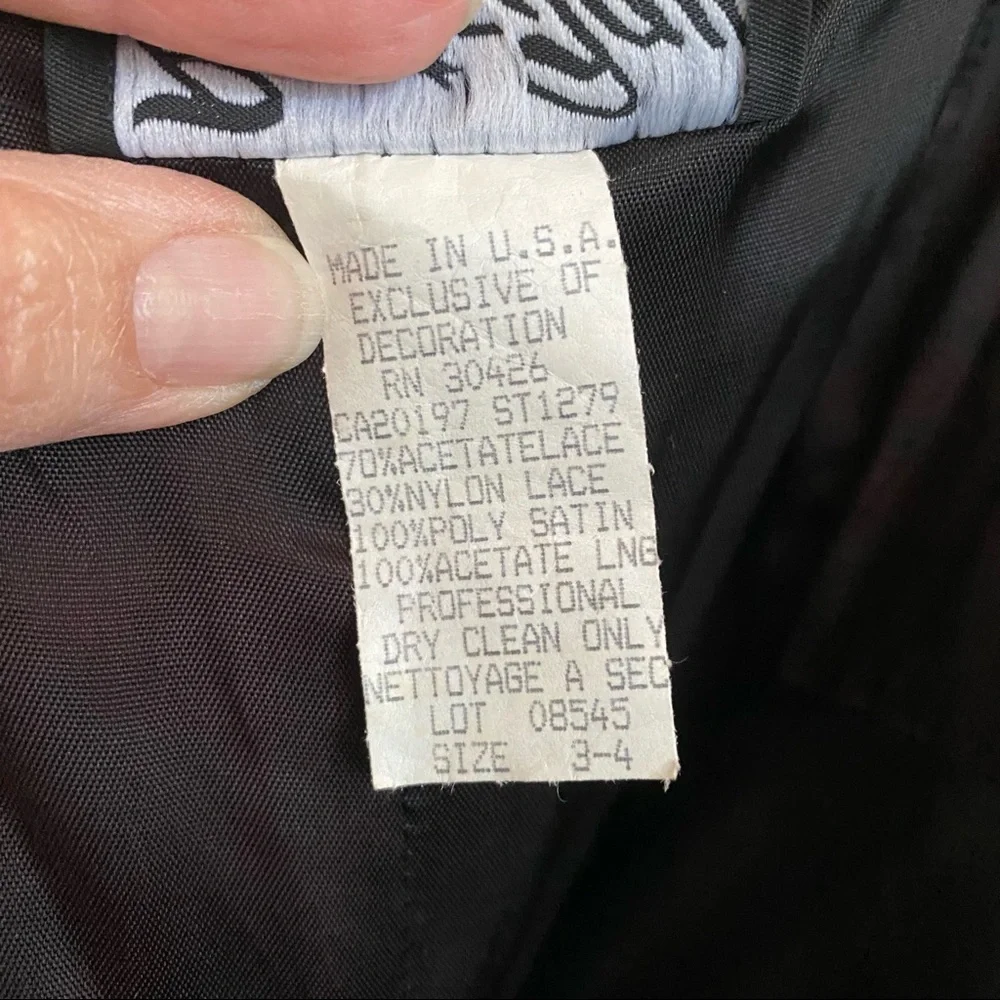 MADE IN U.S.A.
EXCLUSIVE OF
DECORATION
RN 30426
CA20197 ST1279
70%ACETATELACE
30%NYLON LACE
100%POLY SATIN
100%ACETATE LNG
PROFESSIONAL
DRY CLEAN ONLY
NETTOYAGE A SEC
LOT 08545
SIZE 3-4